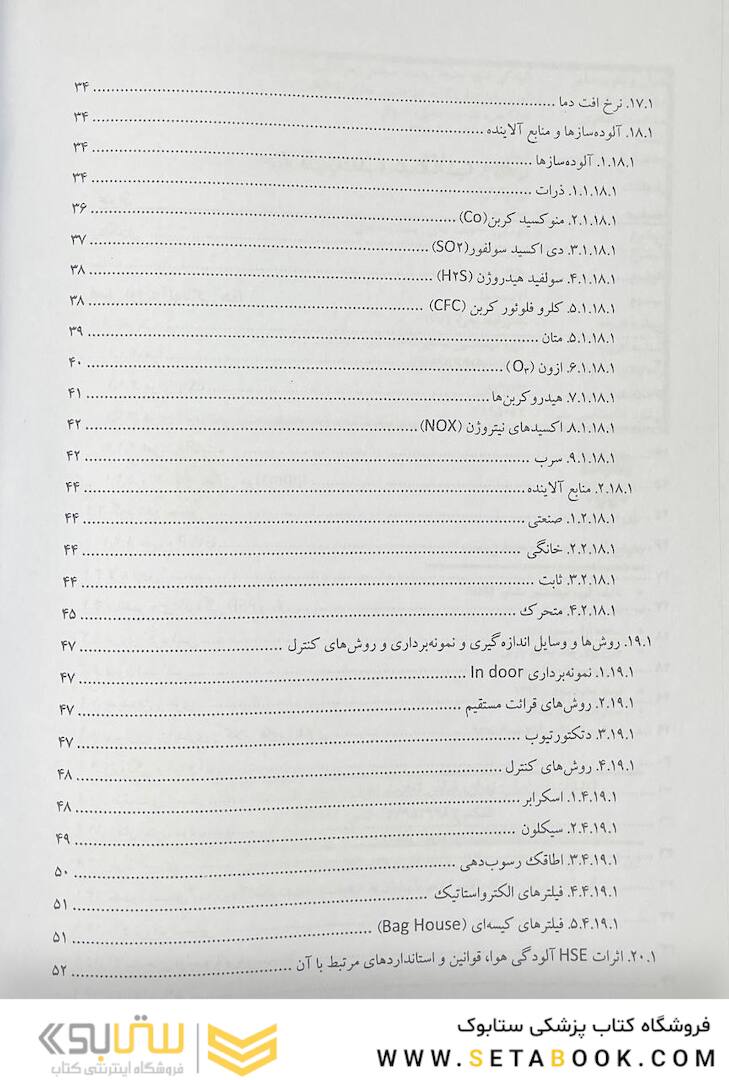 ۱۷.۱. نرخ افت دما ........ ۳۴
۱۸.۱. آلوده‌سازها و منابع آلاینده ........ ۳۴
۱.۱۸.۱. آلوده‌سازها ........ ۳۴
۱.۱.۱۸.۱. ذرات ........ ۳۴
۲.۱.۱۸.۱. منوکسید کربن(Co) ........ ۳۶
۳.۱.۱۸.۱. دی اکسید سولفور(SO۲) ........ ۳۷
۴.۱.۱۸.۱. سولفید هیدروژن (H۲S) ........ ۳۸
۵.۱.۱۸.۱. کلرو فلوئور کربن (CFC) ........ ۳۸
۵.۱.۱۸.۱. متان ........ ۳۹
۶.۱.۱۸.۱. ازون (O۳) ........ ۴۰
۷.۱.۱۸.۱. هیدروکربن‌ها ........ ۴۱
۸.۱.۱۸.۱. اکسیدهای نیتروژن (NOX) ........ ۴۲
۹.۱.۱۸.۱. سرب ........ ۴۲
۲.۱۸.۱. منابع آلاینده ........ ۴۴
۱.۲.۱۸.۱. صنعتی ........ ۴۴
۲.۲.۱۸.۱. خانگی ........ ۴۴
۳.۲.۱۸.۱. ثابت ........ ۴۴
۴.۲.۱۸.۱. متحرک ........ ۴۵
۱۹.۱. روش‌ها و وسایل اندازه‌گیری و نمونه‌برداری و روش‌های کنترل ........ ۴۷
۱.۱۹.۱. نمونه‌برداری In door ........ ۴۷
۲.۱۹.۱. روش‌های قرائت مستقیم ........ ۴۷
۳.۱۹.۱. دتکتورتیوب ........ ۴۷
۴.۱۹.۱. روش‌های کنترل ........ ۴۸
۱.۴.۱۹.۱. اسکرابر ........ ۴۸
۲.۴.۱۹.۱. سیکلون ........ ۴۹
۳.۴.۱۹.۱. اطاقک رسوب‌دهی ........ ۵۰
۴.۴.۱۹.۱. فیلترهای الکترواستاتیک ........ ۵۱
۵.۴.۱۹.۱. فیلترهای کیسه‌ای (Bag House) ........ ۵۱
۲۰.۱. اثرات HSE آلودگی هوا، قوانین و استانداردهای مرتبط با آن ........ ۵۲
فروشگاه کتاب پزشکی ستابوک
WWW.SETABOOK.COM
ستابوک
فروشگاه اینترنتی کتاب